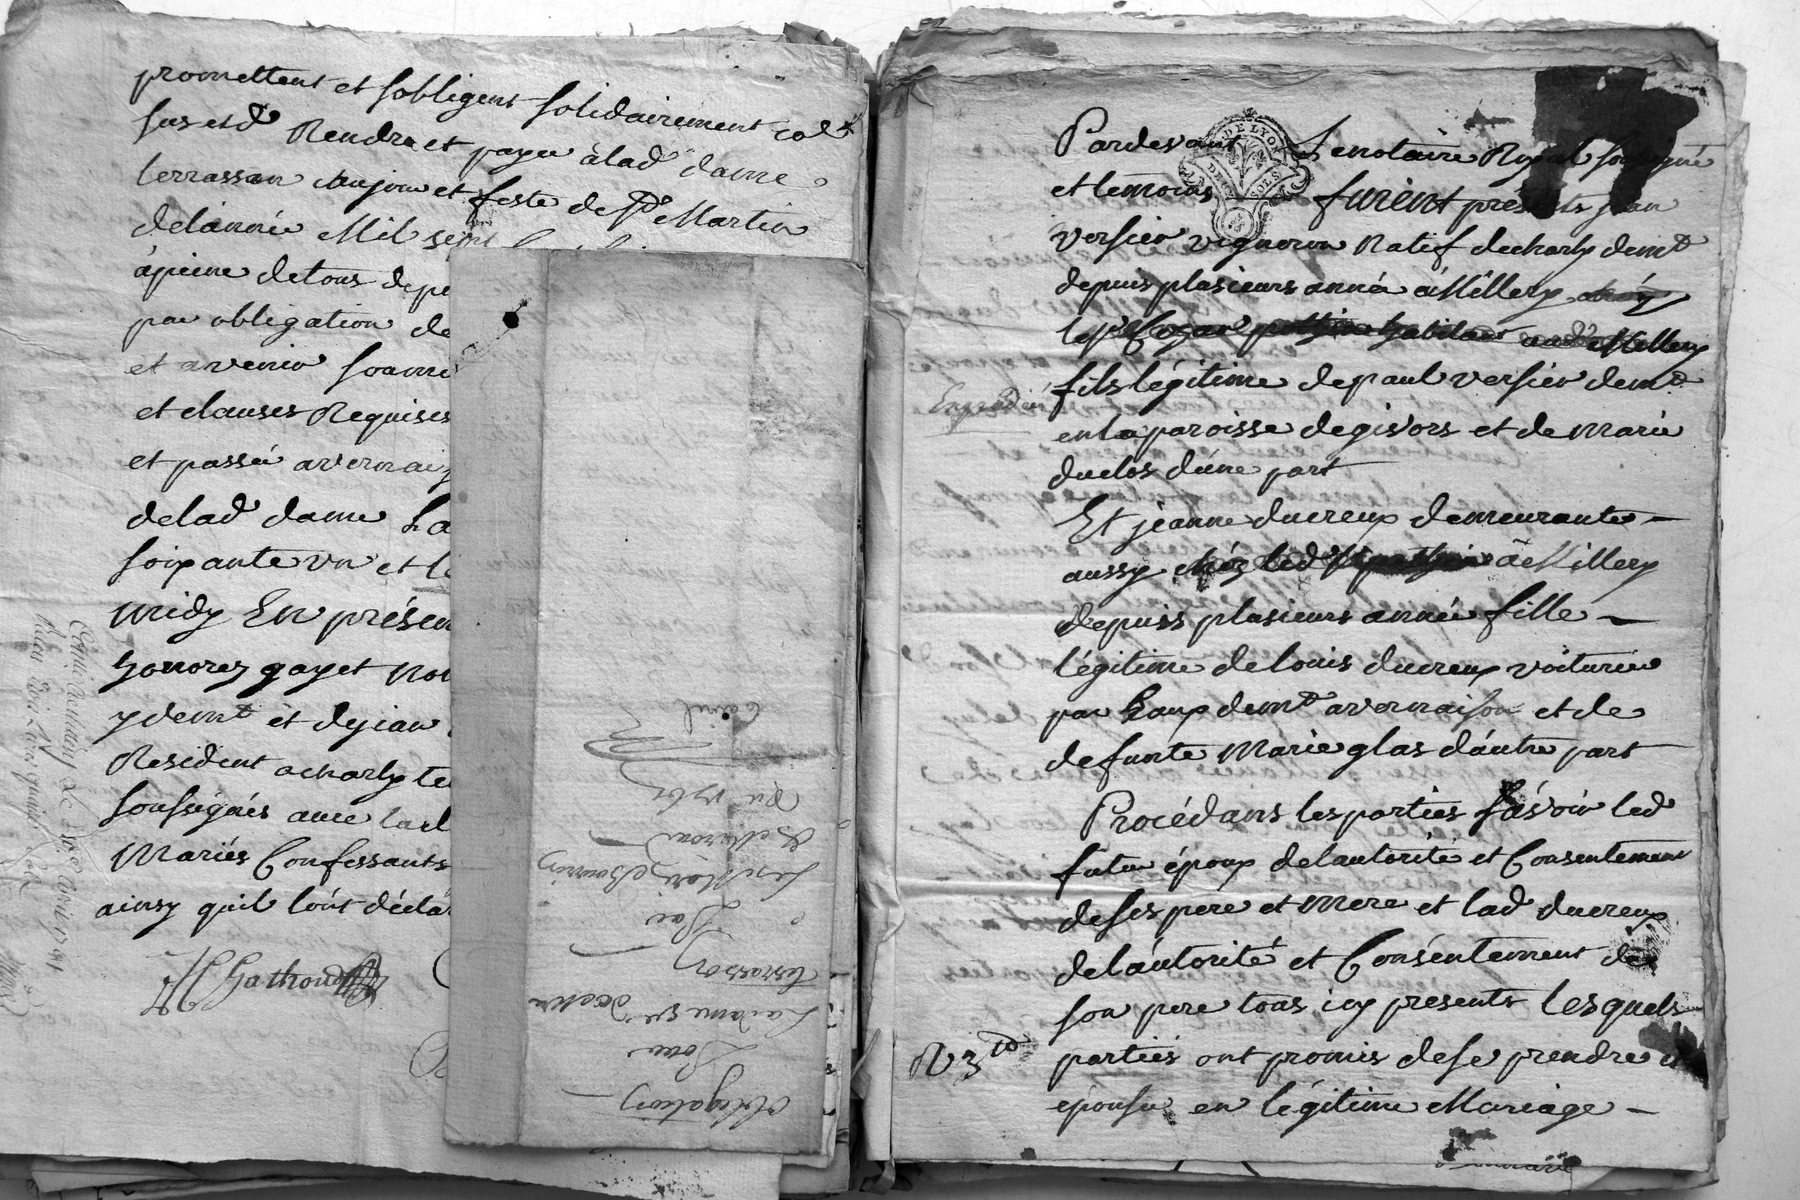 promettent et sobligent solidairement
sus et d Rendre et payer àlad dame
terrasson aujour et feste de St Martin
delannée Mil sept
àpeine detous depe
par obligation de
et avenir soumi
et clauses Requises
et passé avernaiz
delad dame ha
soixante un et le
midy En présen
honorez gayet not
y demt et dejean
Resident acharly te
soussignés avec lad
Mariés Confessants
ainsy quil lont déclar
Obligation
Pour
La dame
terrasson
Les Mariez
du 1761
Pardevant Le notaire Royal soussigné
et temoins furent présents jean
versier vigneron Natif decharly demt
depuis plusieurs année àMillery chéz
le Sr pothin habitant aud Millery
fils légitime de paul versier demt
en la paroisse de givors et de marie
duclos dune part
Et jeanne ducreux demeurante
aussy chéz led Sr pothin àMillery
depuis plusieurs année fille
légitime de louis ducreux voiturier
par Eaux demt avernaison et de
defunte Marie glas dautre part
Procédans les parties sávoir led
futur époux delautorité et Consentement
de ses pere et mere et lad ducreux
delautorité et Consentement de
son pere tous icy presents lesquels
parties ont promis de se prendre et
épouser en légitime Mariage
R 3to
DE LYON
DEUX SOLS